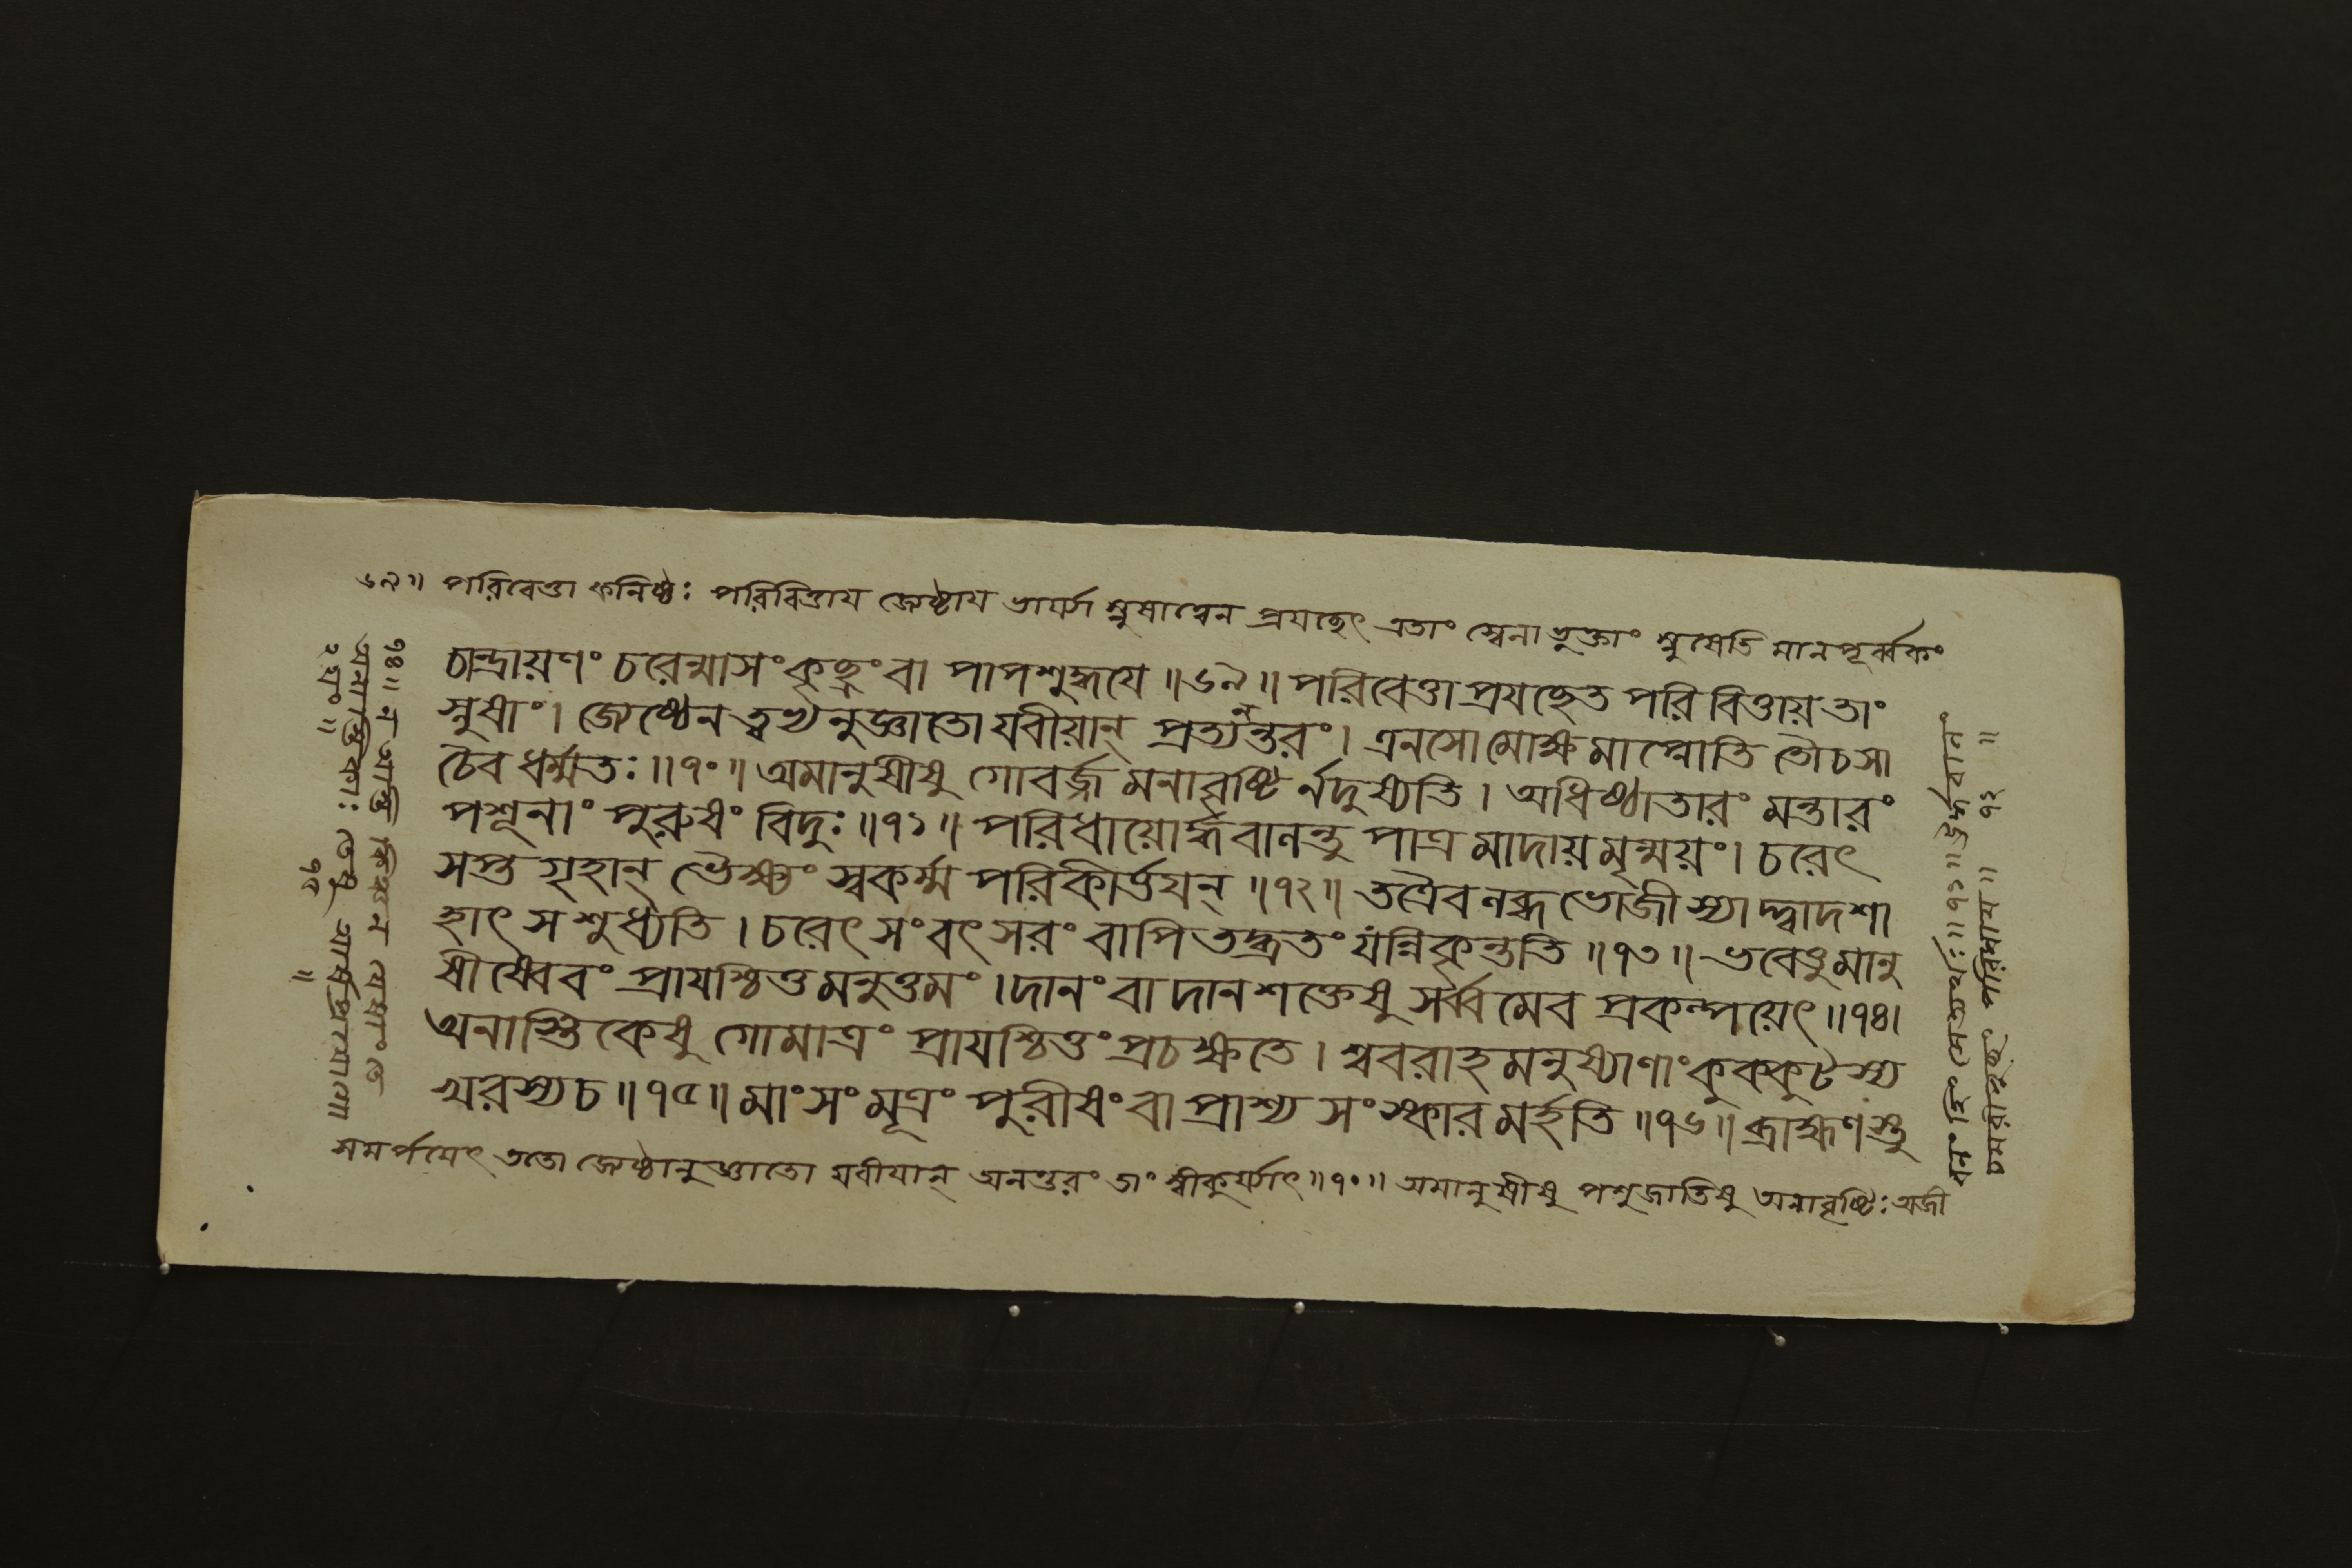 ৬৯॥ পরিবেত্তা কনিষ্ঠঃ পরিবিত্তায জ্যেষ্ঠায ভার্য্যাং স্নুষাত্বেন প্রযচ্ছেৎ এতাং ত্বেনা ভুক্তাং স্নুষেতি মানপূর্ব্বকং
চান্দ্রায়ণং চরেন্মাসং কৃচ্ছ্রং বা পাপশুদ্ধযে ॥৬৯॥ পরিবেত্তা প্রযচ্ছেত পরিবিত্তায় তাং
স্নুষাং। জ্যেষ্ঠেন ত্বভ্যনুজ্ঞাতো যবীয়ান্ প্রত্যনন্তরং। এনসো মোক্ষমাপ্নোতি তৌ চ সা
চৈব ধর্ম্মতঃ॥৭০॥ অমানুষীষু গোবর্জ্জমনাবৃষ্টির্নদুষ্যতি। অধিষ্ঠাতারং মন্তারং
পশূনাং পুরুষং বিদুঃ॥৭১॥ পরিধায়োর্দ্ধবানন্তু পাত্রমাদায় মৃন্ময়ং। চরেৎ
সপ্ত গৃহান্ ভৈক্ষ্যং স্বকর্ম্ম পরিকীর্ত্তযন্॥৭২॥ তত্রৈব নব্ধভোজী স্যাদ্দ্বাদশা
হাৎ স শুধ্যতি। চরেৎ সংবৎসরং বাপি তদ্ব্রতং যন্নিকৃন্ততি॥৭৩॥ ভবেত্তু মানু
ষীষ্বেবং প্রাযশ্চিত্তমনুত্তমং। দানং বা দানশক্তেষু সর্ব্বমেব প্রকল্পয়েৎ॥৭৪।
অনাস্তিকেষু গোমাত্রং প্রাযশ্চিত্তং প্রচক্ষতে। শ্ববরাহমনুষ্যাণাং কুক্কুটস্য
খরস্য চ॥৭৫॥ মাংসং মূত্রং পুরীষং বা প্রাশ্য সংস্কারমর্হতি॥৭৬॥ ব্রাহ্মণস্তু
সমর্পযেৎ ততো জ্যেষ্ঠানুজ্ঞাতো যবীযান্ অনন্তরং তাং স্বীকুর্য্যাৎ॥৭০॥ অমানুষীষু পশুজাতিষু অনাবৃষ্টিঃ অজী
৭১॥ ঊর্দ্ধবানং
চমরীপুচ্ছং পরিধায॥ ৭২॥
৭৪॥ ন আস্তি কিঞ্চন যেষাং তে
অনাস্তিকাঃ তেষু
৭৫
॥